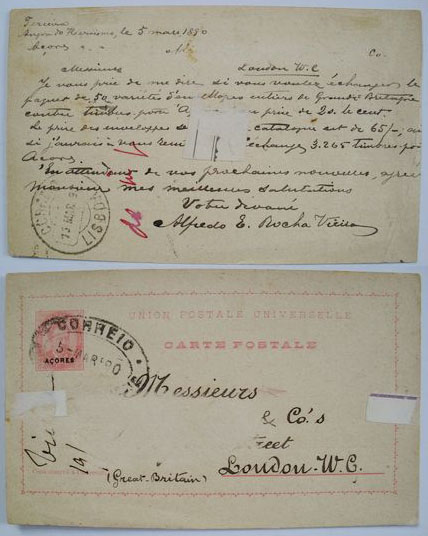 Terceira
Angra do Heroismo, le 5 mars 1890
Açores
Co.
Messieurs
London W.C
Je vous prie de me dire si vous voulez échanger le
paquet de 50 variétés d'enveloppes entiers de Grande Bretagne
contre timbres pour
prix de 20. le cent.
Le prix des enveloppes
catalogue est de 65/-, ou
si j'aurais à vous
échange 3.265 timbres
Açores.
En attendant de vos prochaines nouvelles, agréez
Monsieur mes meilleures salutations
Votre dévoué
Alfredo E. Rocha Vieira
LISBOA
UNION POSTALE UNIVERSELLE
CARTE POSTALE
CORREIO
5-MAR.90
AÇORES
Messieurs
& Co.'s
London-W.C.
(Great-Britain)